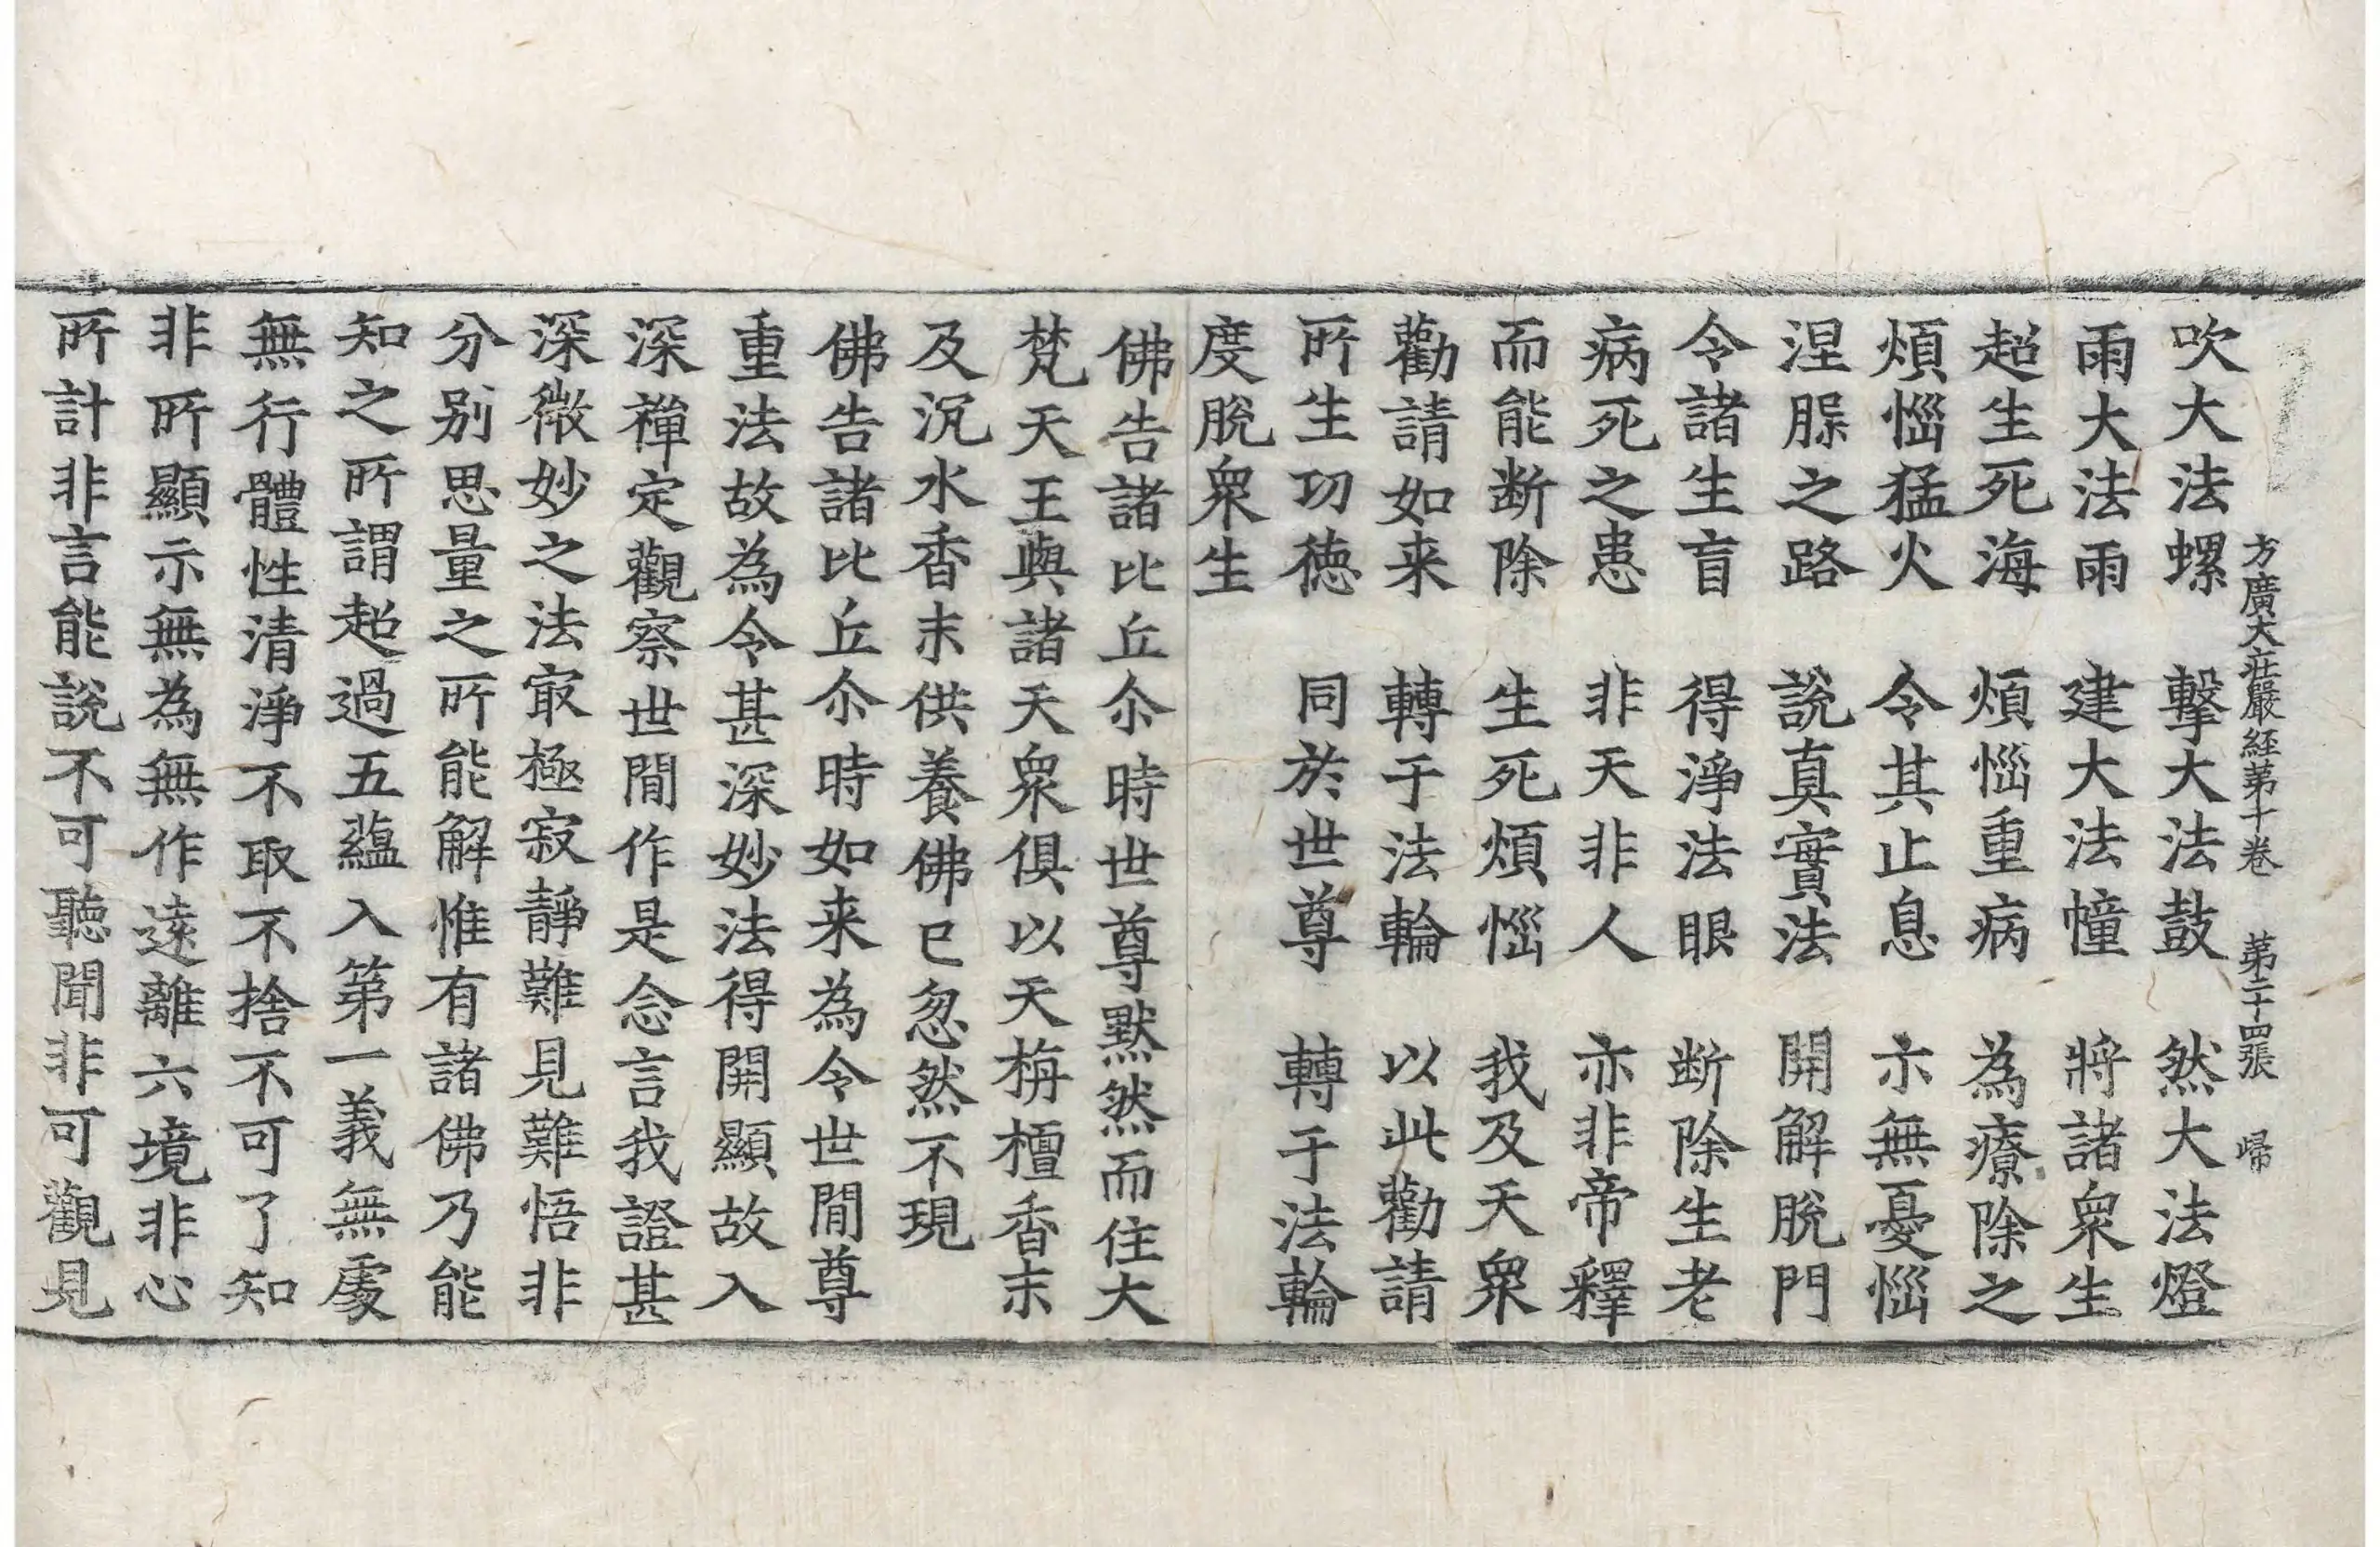 方廣大莊嚴經第十卷　第二十四張　歸
吹大法螺　擊大法鼓　然大法燈
雨大法雨　建大法幢　將諸衆生
超生死海　煩惱重病　為療除之
煩惱猛火　令其止息　示無憂惱
涅槃之路　說真實法　開解脫門
令諸生盲　得淨法眼　断除生老
病死之患　非天非人　亦非帝釋
而能断除　生死煩惱　我及天衆
勸請如来　轉于法輪　以此勸請
所生功德　同於世尊　轉于法輪
度脫衆生
佛告諸比丘尒時世尊默然而住大
梵天王與諸天衆俱以天栴檀香末
及沉水香末供養佛已忽然不現
佛告諸比丘尒時如来為令世間尊
重法故為令甚深妙法得開顯故入
深禪定觀察世間作是念言我證甚
深微妙之法冣極寂靜難見難悟非
分別思量之所能解惟有諸佛乃能
知之所謂超過五蘊入第一義無處
無行體性清淨不取不捨不可了知
非所顯示無為無作遠離六境非心
所計非言能說不可聽聞非可觀見